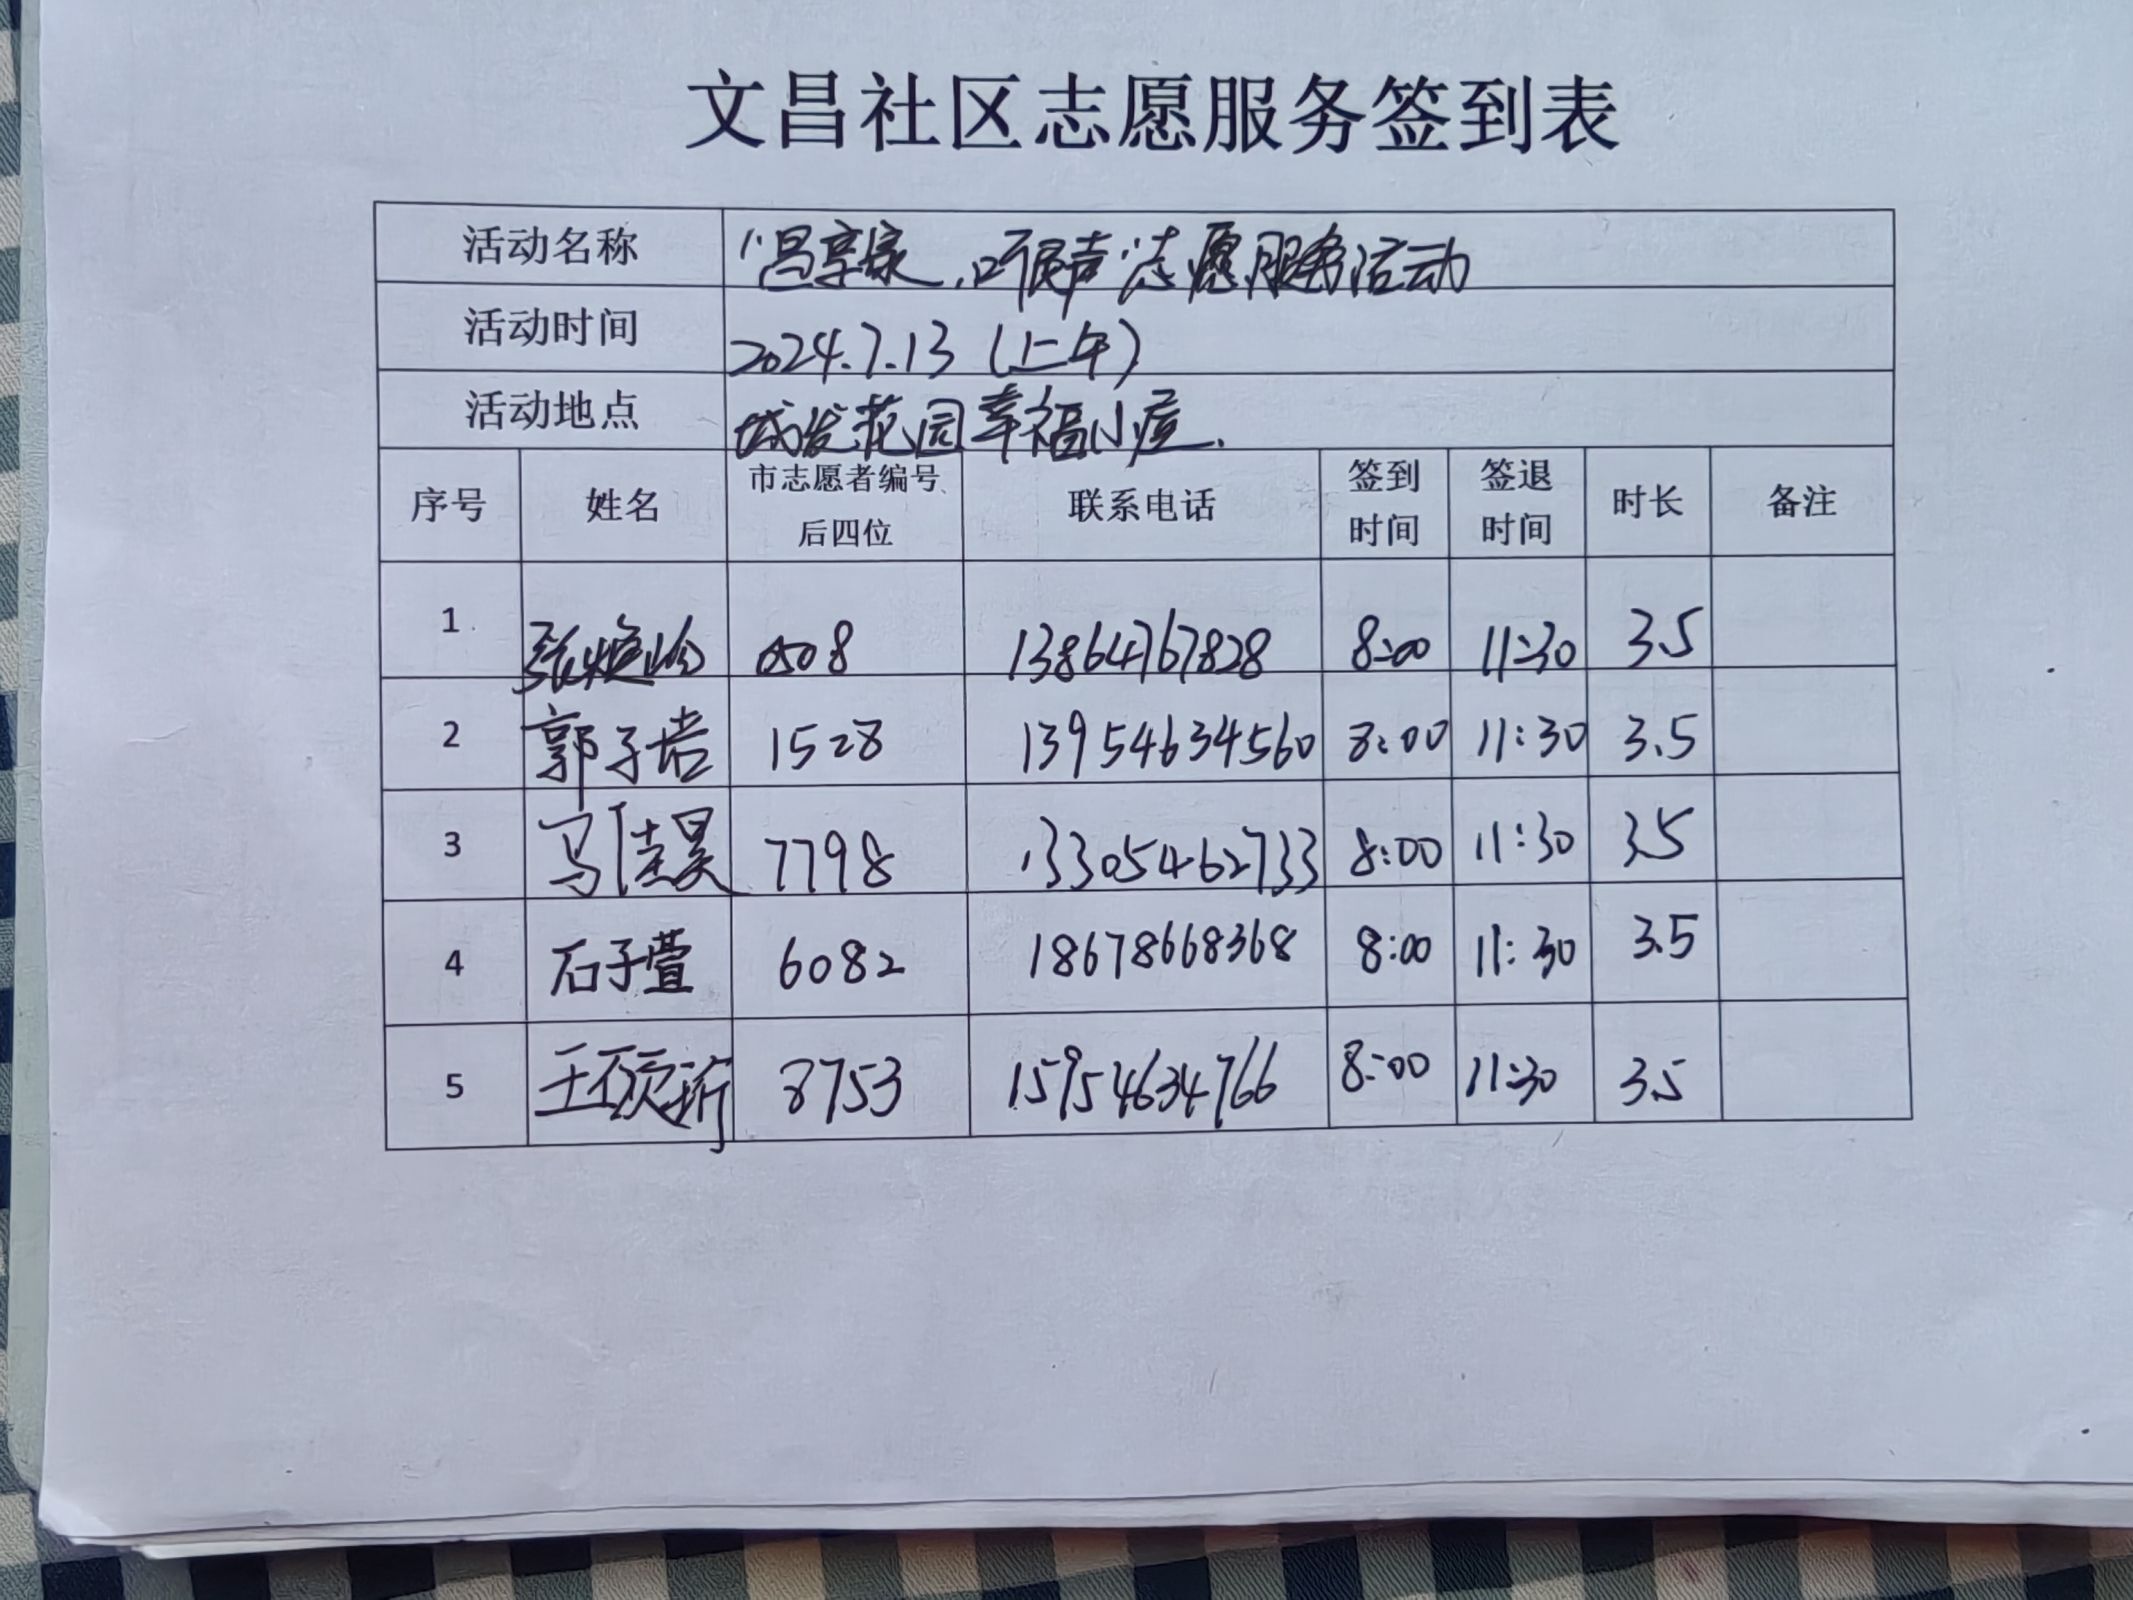 文昌社区志愿服务签到表
活动名称 “昌享家,听民声”志愿服务活动
活动时间 2024.7.13 (上午)
活动地点 城发花园幸福小屋.
序号 姓名 市志愿者编号后四位 联系电话 签到时间 签退时间 时长 备注
1 张焕 0508 13864767828 8:00 11:30 3.5
2 郭子岩 1528 13954634560 8:00 11:30 3.5
3 马佳昊 7798 13305462733 8:00 11:30 3.5
4 石子萱 6082 18678668368 8:00 11:30 3.5
5 王硕珩 8753 15954634766 8:00 11:30 3.5